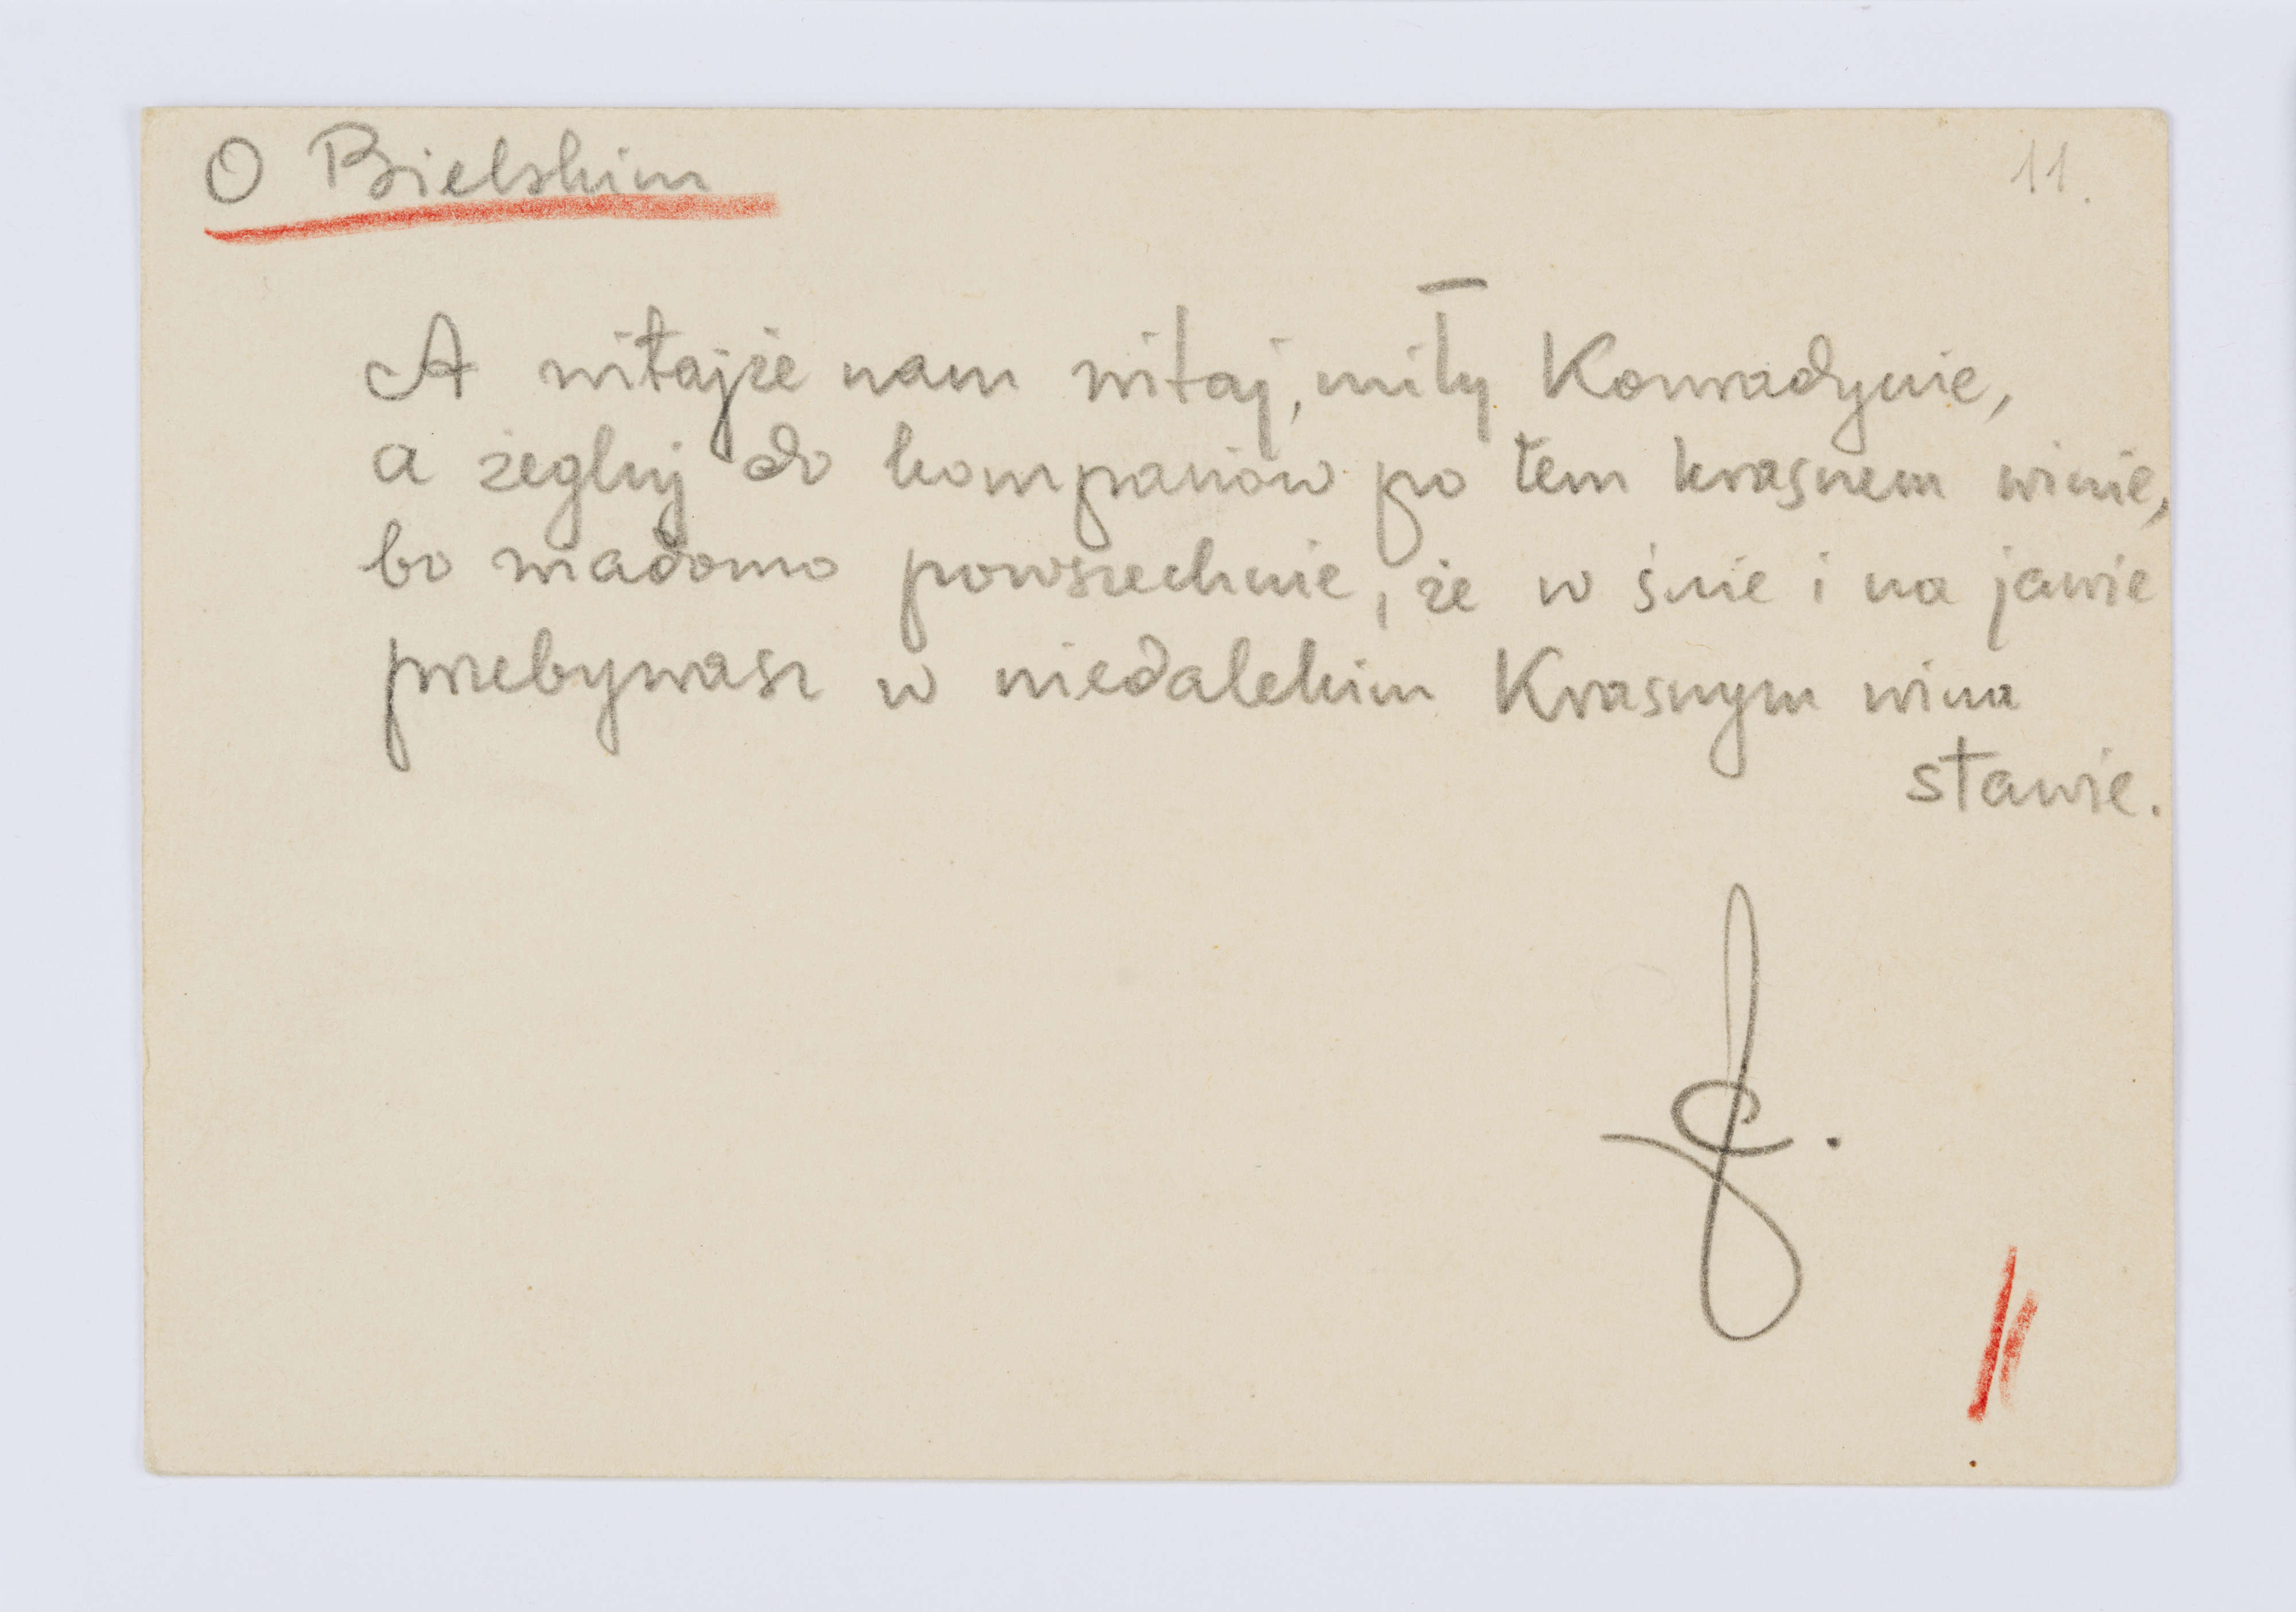 O Bielskim
11.
A witajże nam witaj, miły Konradynie,
a żegluj do kompanów po tem krasnem winie,
bo wiadomo powszechnie, że w śnie i na jawie
przebywasz w niedalekim Krasnym wina
stawie.